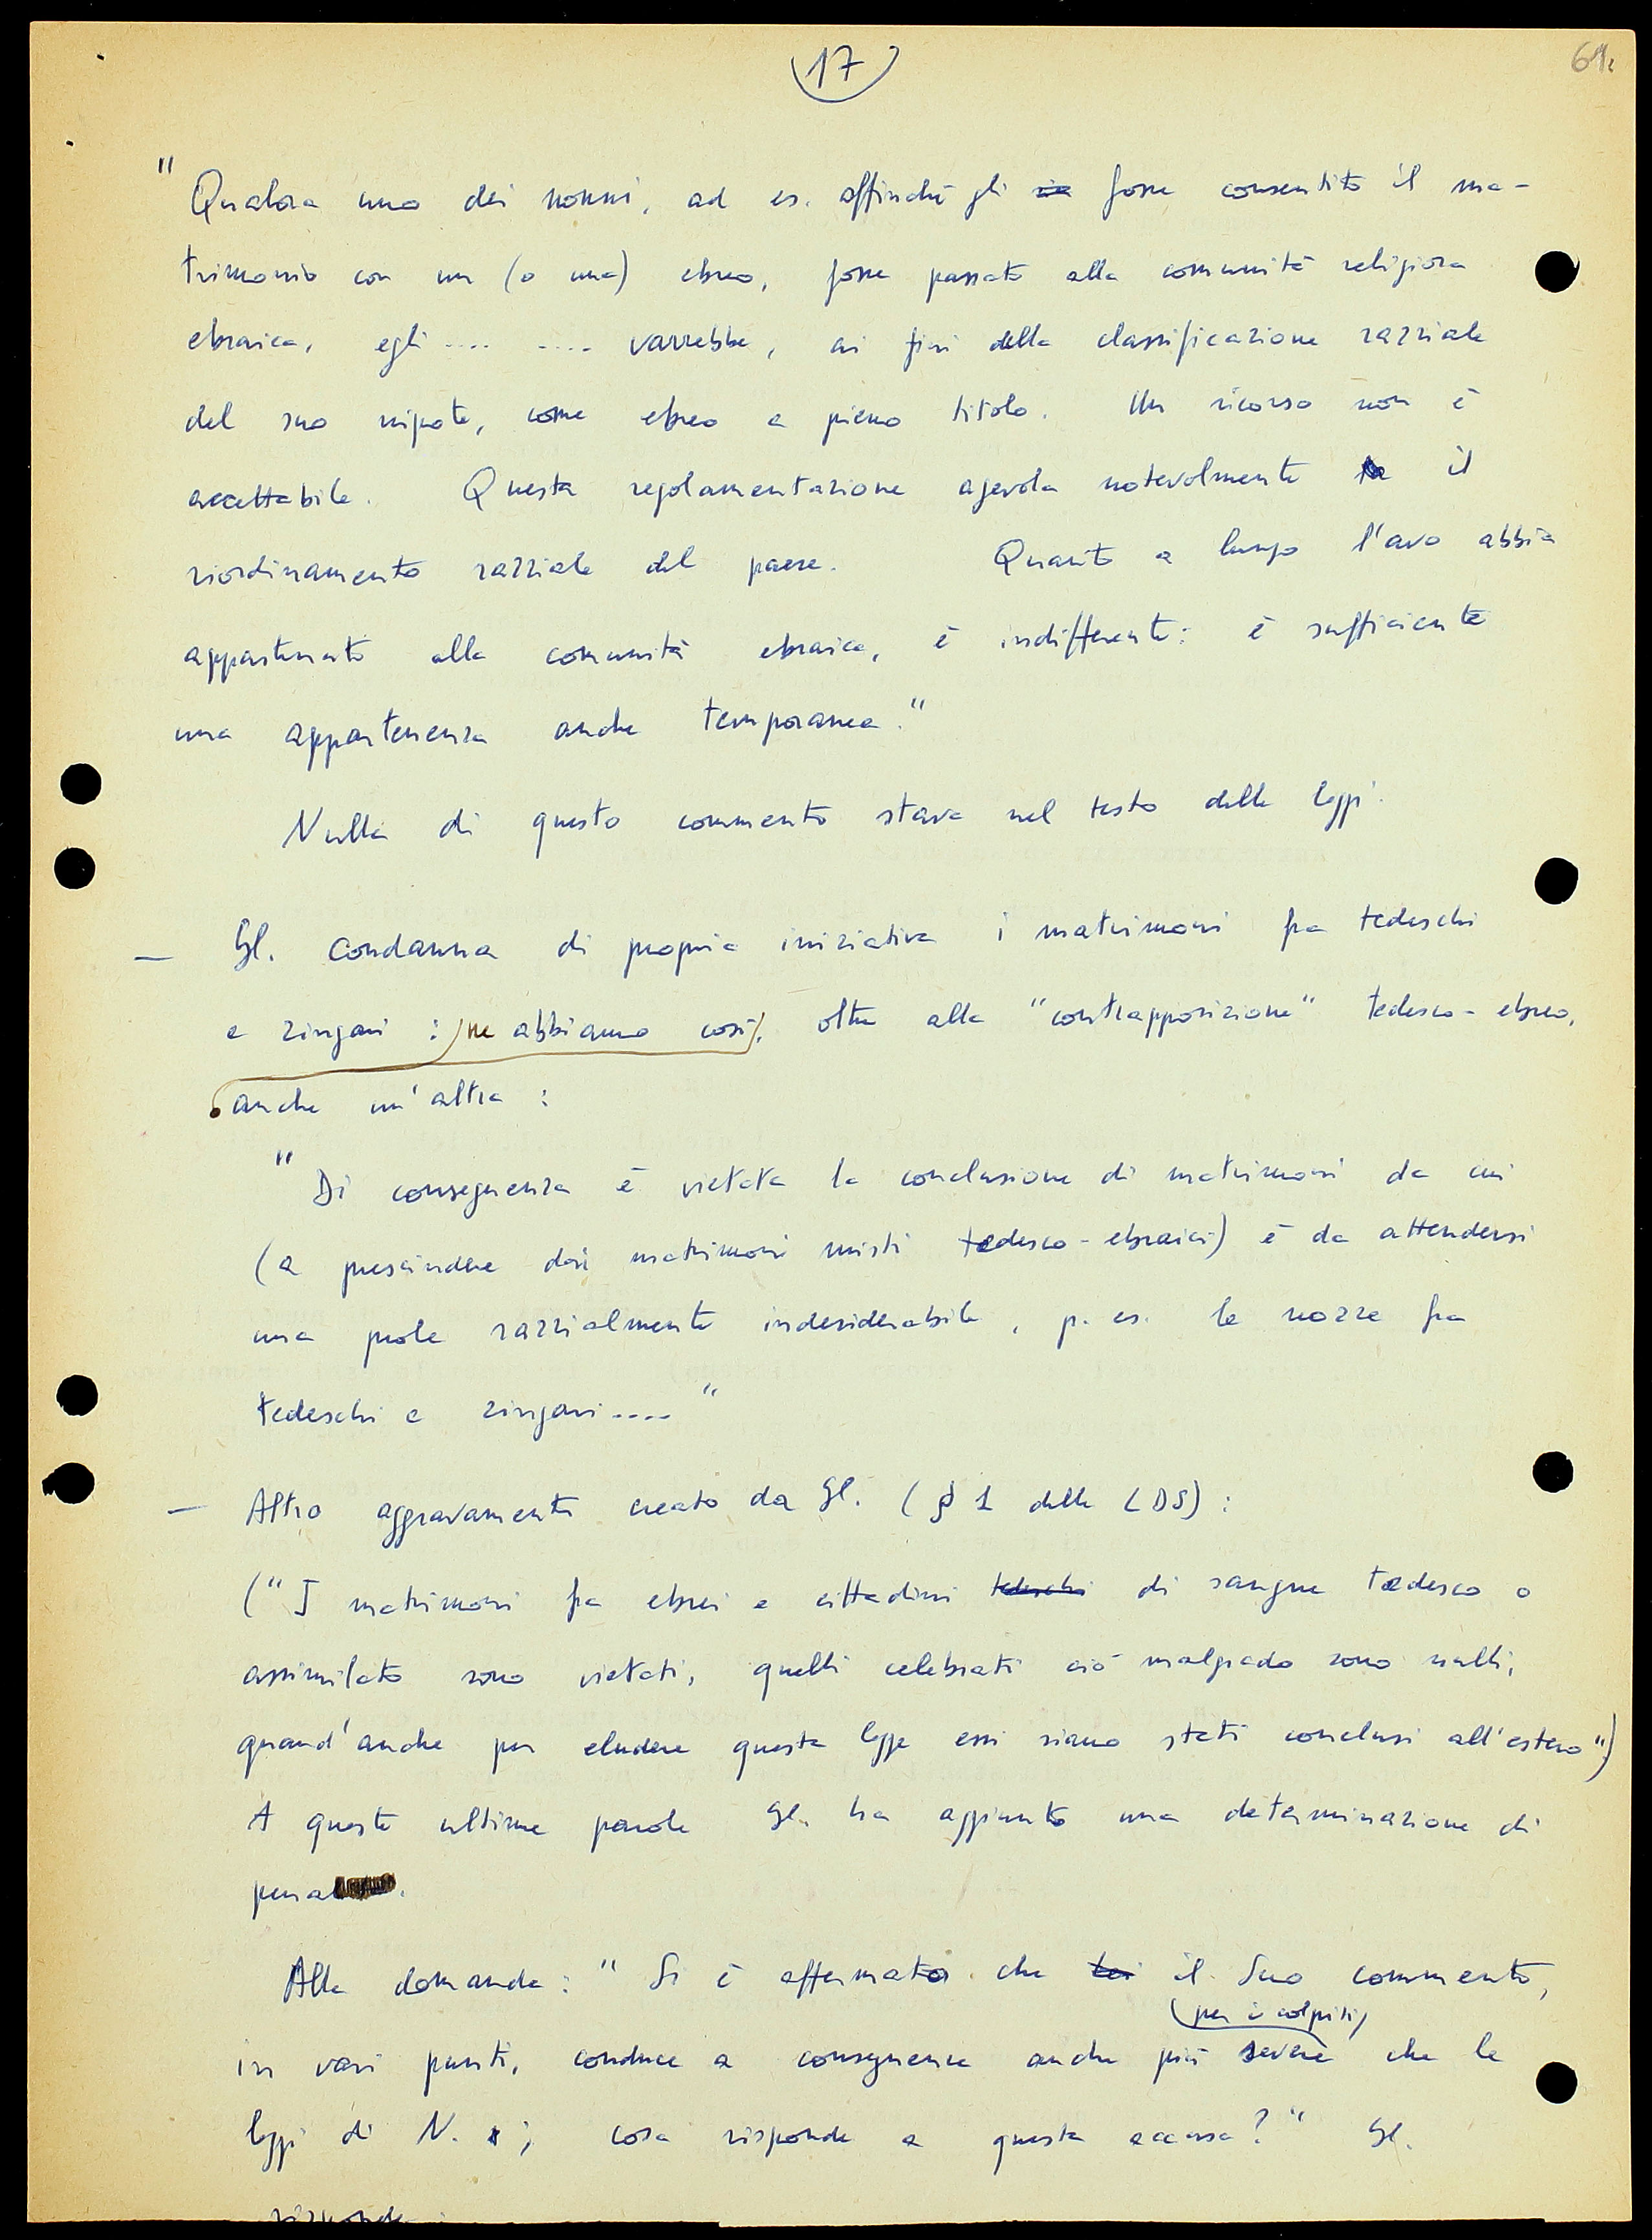 17
64.
" Qualora uno dei nonni, ad es. affinché gli fosse consentito il ma-
trimonio con un (o una) ebreo, fosse passato alla comunità religiosa
ebraica, egli .... .... varrebbe, ai fini della classificazione razziale
del suo nipote, come ebreo a pieno titolo. Un ricorso non è
accettabile. Questa regolamentazione agevola notevolmente il
riordinamento razziale del paese. Quanto a lungo l'avo abbia
appartenuto alla comunità ebraica, è indifferente: è sufficiente
una appartenenza anche temporanea."
Nulla di questo commento stava nel testo delle leggi.
— Gl. condanna di propria iniziativa i matrimoni fra tedeschi
e zingari : ne abbiamo così, oltre alla "contrapposizione" tedesco-ebreo,
anche un'altra :
" Di conseguenza è vietata la conclusione di matrimoni da cui
(a prescindere dai matrimoni misti tedesco-ebraici) è da attendersi
una prole razzialmente indesiderabile, p. es. le nozze fra
tedeschi e zingari .... "
— Altro aggravamento creato da Gl. (§ 1 delle LDS) :
(" I matrimoni fra ebrei e cittadini tedeschi di sangue tedesco o
assimilato sono vietati, quelli celebrati ciò malgrado sono nulli,
quand'anche per eludere questa legge essi siano stati conclusi all'estero".)
A queste ultime parole Gl. ha aggiunto una determinazione di
pena.
Alla domanda : " Si è affermato che lei il Suo commento,
(per i colpiti)
in vari punti, conduce a conseguenze anche più severe che le
leggi di N. ; cosa risponde a questa accusa? " Gl.
risponde :